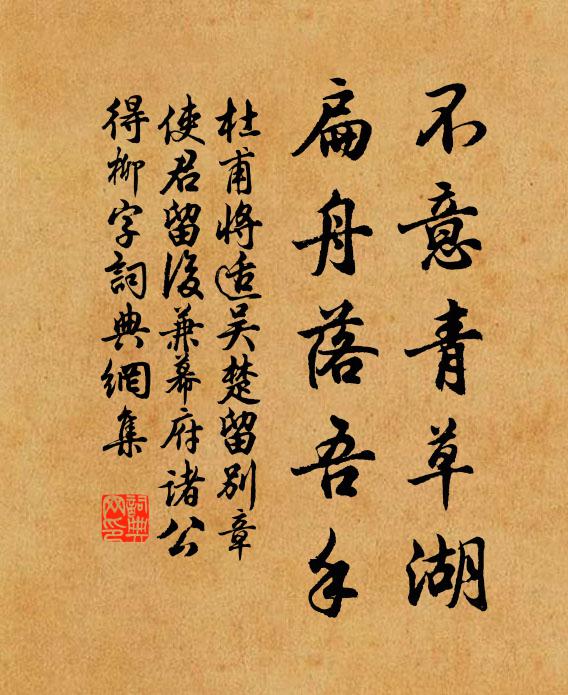 不意青草湖
扁舟落吾手
杜甫將适吴楚留别章
使君留後兼幕府诸公
得柳字詞典網集
詞典网印